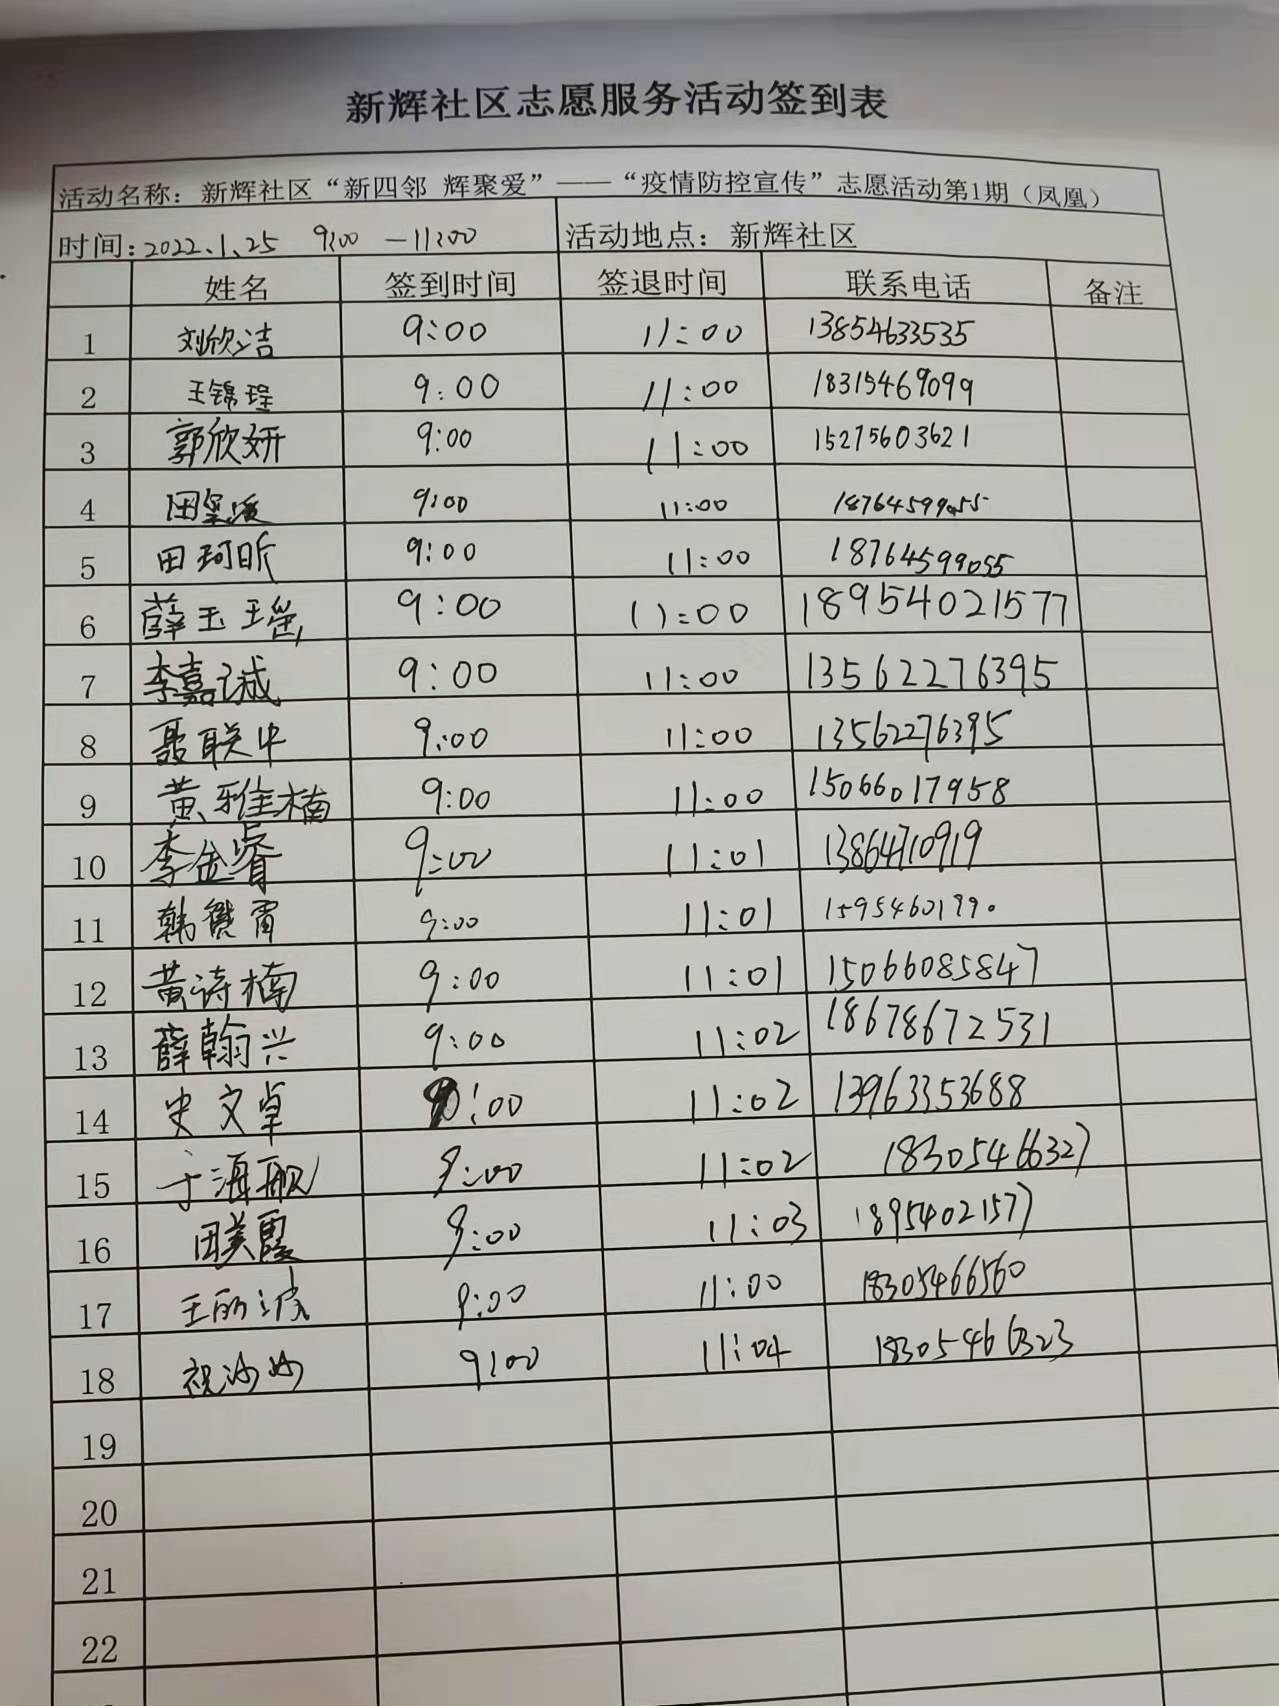 新辉社区志愿服务活动签到表
活动名称：新辉社区“新四邻 辉聚爱”——“疫情防控宣传”志愿活动第1期（凤凰）
时间：2022.1.25 9:00 —11:00 活动地点：新辉社区
姓名 签到时间 签退时间 联系电话 备注
1 刘欣洁 9:00 11:00 13854633535
2 王锦瑝 9:00 11:00 18315469099
3 郭欣妍 9:00 11:00 15275603621
4 9:00 11:00 18764599055
5 田珂昕 9:00 11:00 18764599055
6 薛玉瑶 9:00 11:00 18954021577
7 李嘉诚 9:00 11:00 13562276395
8 聂联中 9:00 11:00 13562276395
9 黄雅楠 9:00 11:00 15066017958
10 李金睿 9:00 11:01 13864710919
11 9:00 11:01
12 黄诗楠 9:00 11:01 15066085847
13 薛翰兴 9:00 11:02 18678672531
14 史文卓 9:00 11:02 13963353688
15 于海靓 9:00 11:02 18305466327
16 田美霞 9:00 11:03 18954021577
17 王丽波 9:00 11:00 18305466560
18 祝沙沙 9:00 11:04 18305466323
19
20
21
22